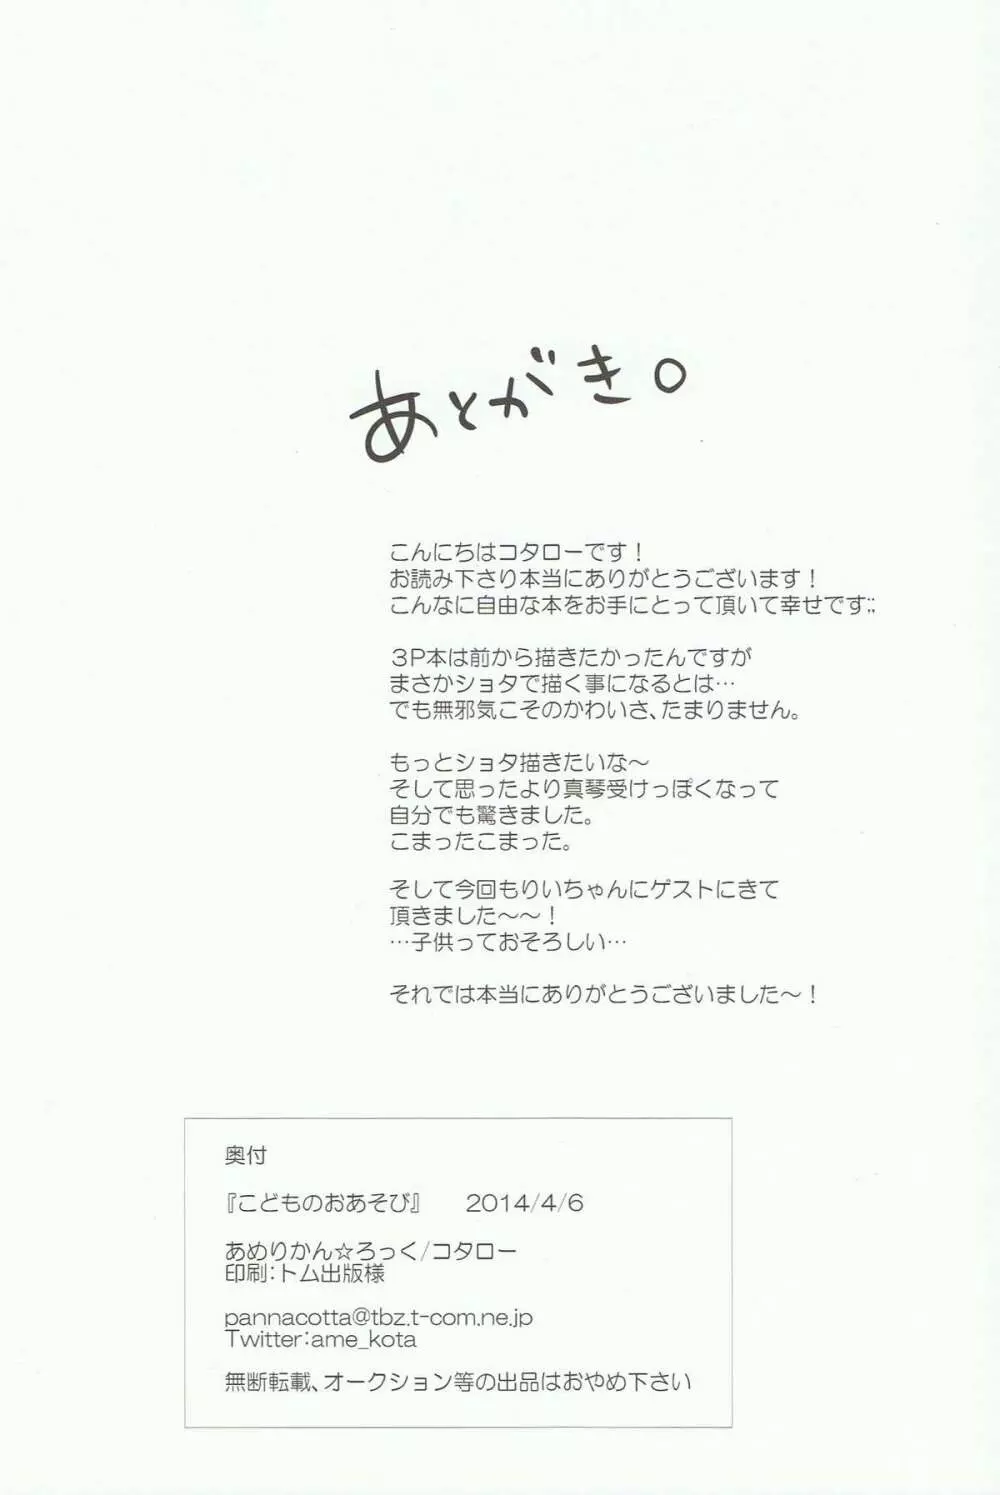 あとがき。
こんにちはコタローです！
お読み下さり本当にありがとうございます！
こんなに自由な本をお手にとって頂いて幸せです;;
３P本は前から描きたかったんですが
まさかショタで描く事になるとは…
でも無邪気こそのかわいさ、たまりません。
もっとショタ描きたいな～
そして思ったより真琴受けっぽくなって
自分でも驚きました。
こまったこまった。
そして今回もりいちゃんにゲストにきて
頂きました～～！
…子供っておそろしい…
それでは本当にありがとうございました～！
奥付
『こどものおあそび』　2014/4/6
あめりかん☆ろっく/コタロー
印刷：トム出版様
pannacotta@tbz.t-com.ne.jp
Twitter:ame_kota
無断転載、オークション等の出品はおやめ下さい